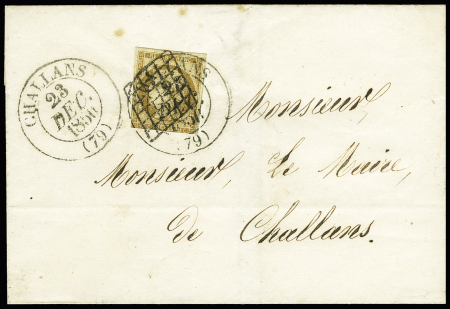 CHALLANS
23
DEC
1850
(79)
ANS
(79)
Monsieur,
Monsieur, Le Maire,
de Challans.